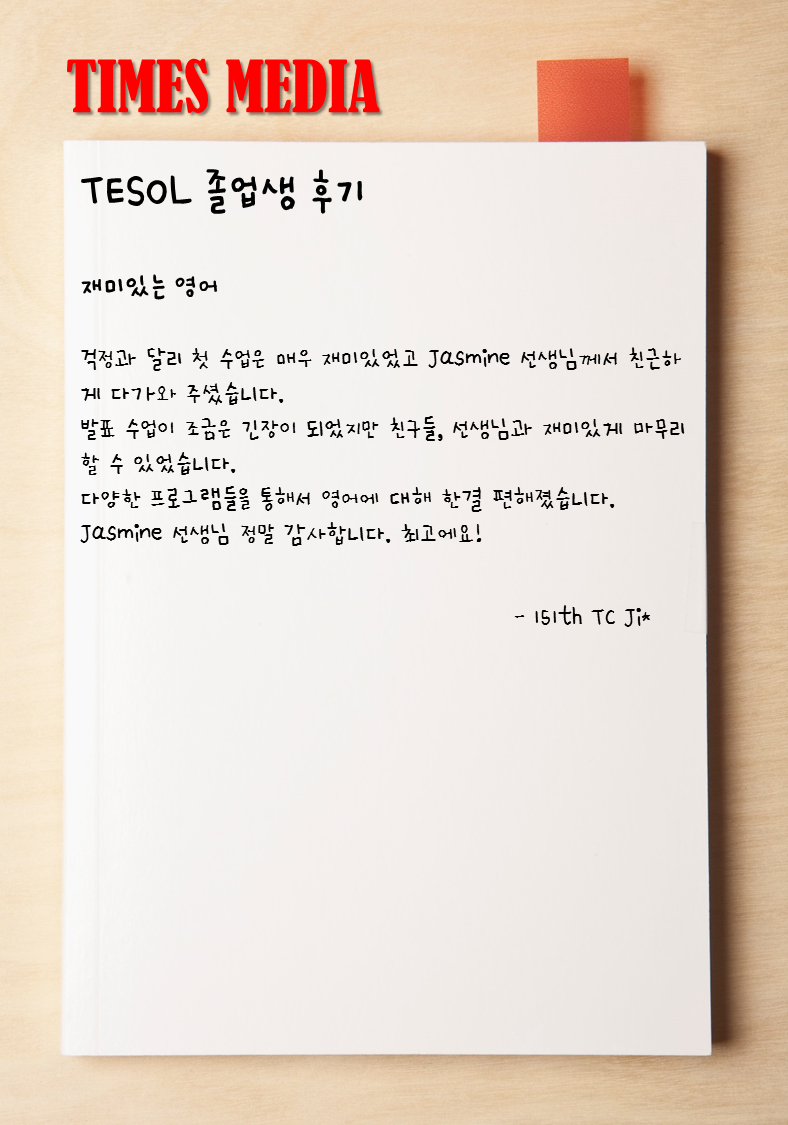 TIMES MEDIA
TESOL 졸업생 후기
재미있는 영어
걱정과 달리 첫 수업은 매우 재미있었고 Jasmine 선생님께서 친근하
게 다가와 주셨습니다.
발표 수업이 조금은 긴장이 되었지만 친구들, 선생님과 재미있게 마무리
할 수 있었습니다.
다양한 프로그램들을 통해서 영어에 대해 한결 편해졌습니다.
Jasmine 선생님 정말 감사합니다. 최고에요!
- 151th TC Ji*